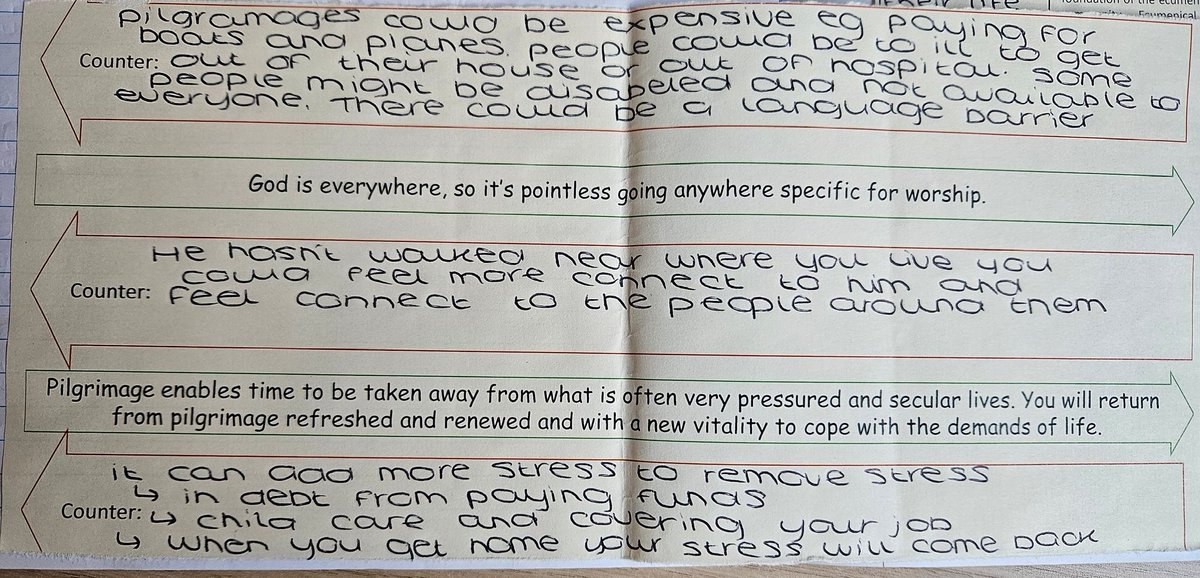 HEALTH / LIFE
foundation of the ecumen
Ecumenical
Pilgramages could be expensive eg paying for
boats and planes. people could be to ill to get
Counter: out of their house or out of hospital. some
people might be disabeled and not available to
everyone. There could be a language barrier
God is everywhere, so it's pointless going anywhere specific for worship.
He hasn't walked near where you live you
could feel more connect to him and
Counter: feel connect to the people around them
Pilgrimage enables time to be taken away from what is often very pressured and secular lives. You will return
from pilgrimage refreshed and renewed and with a new vitality to cope with the demands of life.
it can add more stress to remove stress
↳ in debt from paying funds
Counter: ↳ child care and covering your job
↳ when you get home your stress will come back